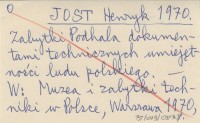 O
JOST Henryk 1970.
Zabytki Podhala dokumen-
tami technicznych umiejęt-
ności ludu polskiego. —
W: Muzea i zabytki tech-
niki w Polsce, Warszawa 1970,